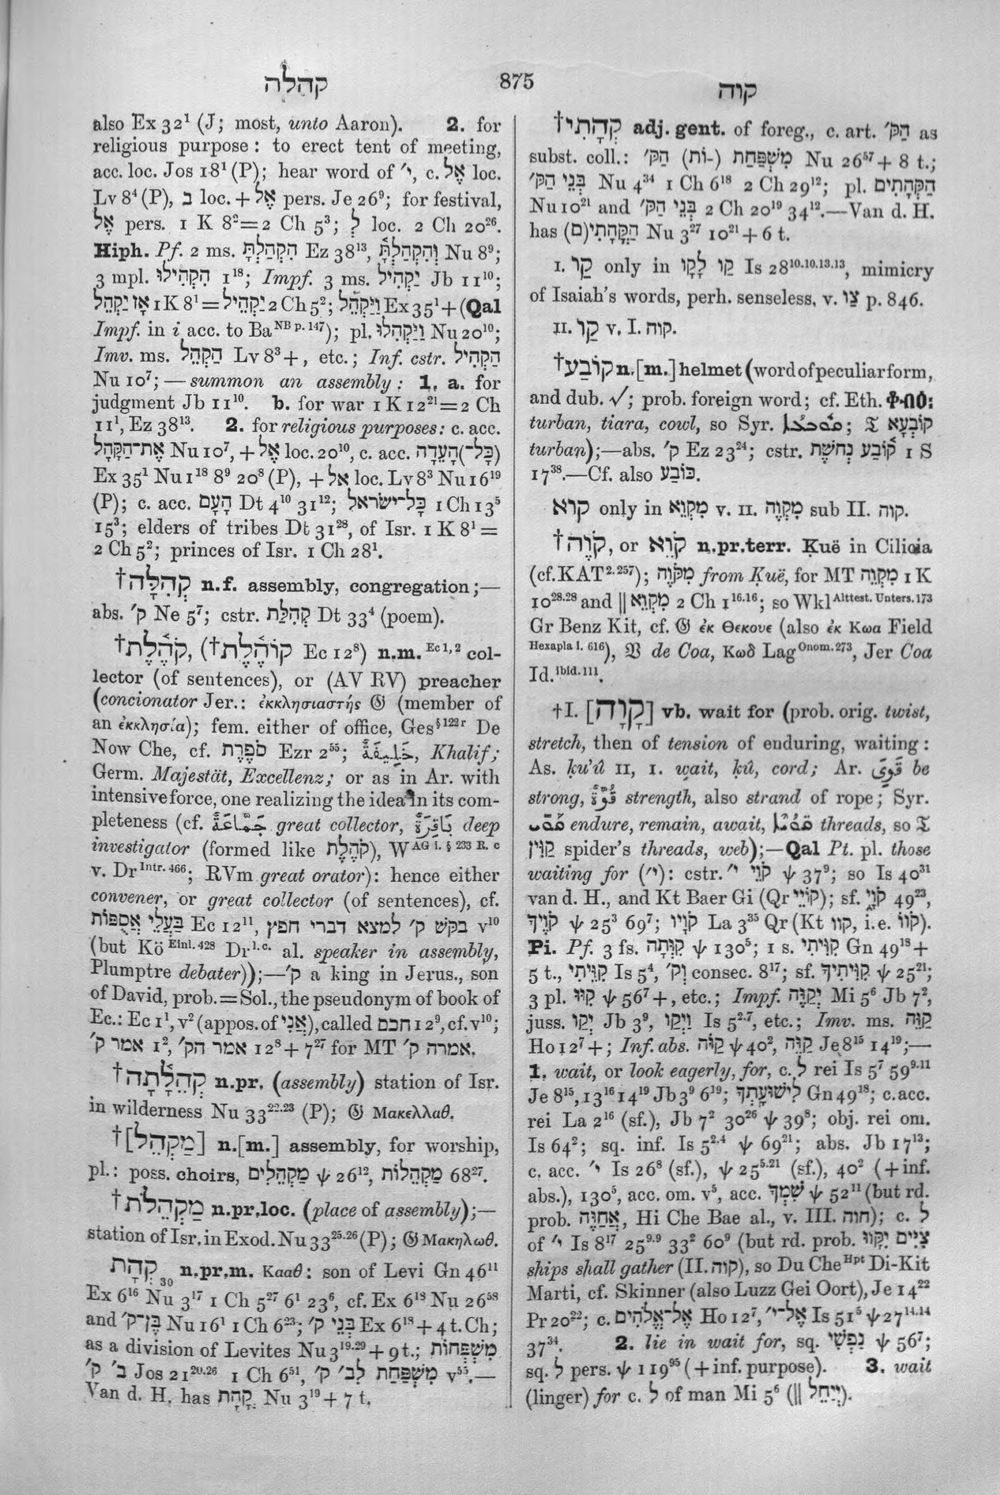 קהלה
875
קוה
also Ex 32¹ (J; most, unto Aaron). 2. for
religious purpose : to erect tent of meeting,
acc. loc. Jos 18¹ (P); hear word of י׳, c. אֶל loc.
Lv 8⁴ (P), בְּ loc. + אֶל pers. Je 26⁹; for festival,
אֶל pers. 1 K 8²=2 Ch 5³; לְ loc. 2 Ch 20²⁶.
Hiph. Pf. 2 ms. הִקְהַלְתָּ Ez 38¹³, וְהִקְהַלְתָּ֫ Nu 8⁹;
3 mpl. הִקְהִילוּ 1¹⁸; Impf. 3 ms. יַקְהִיל Jb 11¹⁰;
אָז יַקְהֵל 1 K 8¹ = יַקְהֵיל 2 Ch 5²; וַיַּקְהֵל Ex 35¹+(Qal
Impf. in i acc. to Ba NB p. 147); pl. וַיַּקְהִלוּ Nu 20¹⁰;
Imv. ms. הַקְהֵל Lv 8³+, etc.; Inf. cstr. הַקְהִיל
Nu 10⁷;—summon an assembly: 1. a. for
judgment Jb 11¹⁰. b. for war 1 K 12²¹=2 Ch
11¹, Ez 38¹³. 2. for religious purposes: c. acc.
אֶת־הַקָּהָל Nu 10⁷, + אֶל loc. 20¹⁰, c. acc. (כָּל־)הָעֵדָה
Ex 35¹ Nu 1¹⁸ 8⁹ 20⁸ (P), + אֶל loc. Lv 8³ Nu 16¹⁹
(P); c. acc. הָעָם Dt 4¹⁰ 31¹²; כָּל־יִשְׂרָאֵל 1 Ch 13⁵
15³; elders of tribes Dt 31²⁸, of Isr. 1 K 8¹ =
2 Ch 5²; princes of Isr. 1 Ch 28¹.
†קְהִלָּה n.f. assembly, congregation;—
abs. ק׳ Ne 5⁷; cstr. קְהִלַּת Dt 33⁴ (poem).
†קֹהֶ֫לֶת, (†קוֹהֶ֫לֶת Ec 12⁸) n.m. Ec 1, 2 col-
lector (of sentences), or (AV RV) preacher
(concionator Jer.: ἐκκλησιαστής 𝔊 (member of
an ἐκκλησία); fem. either of office, Ges §122r De
Now Che, cf. סֹפֶרֶת Ezr 2⁵⁵; خَلِيفَةٌ, Khalif;
Germ. Majestät, Excellenz; or as in Ar. with
intensive force, one realizing the idea in its com-
pleteness (cf. جَمَّاعَةٌ great collector, بَاقِرَةٌ deep
investigator (formed like קֹהֶלֶת), W AG i. § 233 R. c
v. Dr Intr. 466; RVm great orator): hence either
convener, or great collector (of sentences), cf.
בַּעֲלֵי אֲסֻפּוֹת Ec 12¹¹, בקשׁ ק׳ למצא דברי חפץ v¹⁰
(but Kö Einl. 428 Dr l.c. al. speaker in assembly,
Plumptre debater));—ק׳ a king in Jerus., son
of David, prob.=Sol., the pseudonym of book of
Ec.: Ec 1¹, v² (appos. of אֲנִי), called חכם 12⁹, cf. v¹⁰;
אמר ק׳ 1², אמר הק׳ 12⁸+ 7²⁷ for MT אמרה ק׳.
†קְהֵלָ֫תָה n.pr. (assembly) station of Isr.
in wilderness Nu 33²²·²³ (P); 𝔊 Μακελλαθ.
†[מַקְהֵל] n.[m.] assembly, for worship,
pl.: poss. choirs, מַקְהֵלִים ψ 26¹², מַקְהֵלוֹת 68²⁷.
†מַקְהֵלֹת n.pr.loc. (place of assembly);—
station of Isr. in Exod. Nu 33²⁵·²⁶ (P); 𝔊 Μακηλωθ.
קְהָת 30 n.pr.m. Κααθ: son of Levi Gn 46¹¹
Ex 6¹⁶ Nu 3¹⁷ 1 Ch 5²⁷ 6¹ 23⁶, cf. Ex 6¹⁸ Nu 26⁵⁸
and בֶּן־ק׳ Nu 16¹ 1 Ch 6²³; בְּנֵי ק׳ Ex 6¹⁸+4 t. Ch;
as a division of Levites Nu 3¹⁹·²⁹ + 9 t.; מִשְׁפְּחוֹת
בְּ׳ ק׳ Jos 21²⁰·²⁶ 1 Ch 6⁵¹, מִשְׁפַּחַת לִב׳ ק׳ v⁵⁵.—
Van d. H. has קֳהָת Nu 3¹⁹ + 7 t.
†קְהָתִי adj. gent. of foreg., c. art. הַקּ׳ as
subst. coll.: מִשְׁפַּחַת (־וֹת) הַקּ׳ Nu 26⁵⁷ + 8 t.;
בְּנֵי הַקּ׳ Nu 4³⁴ 1 Ch 6¹⁸ 2 Ch 29¹²; pl. הַקְּהָתִים
Nu 10²¹ and בְּנֵי הַקּ׳ 2 Ch 20¹⁹ 34¹².—Van d. H.
has הַקֳּהָתִי(ם) Nu 3²⁷ 10²¹ + 6 t.
I. קַו only in קַו לָקָו Is 28¹⁰·¹⁰·¹³·¹³, mimicry
of Isaiah's words, perh. senseless, v. צַו p. 846.
II. קַו v. I. קוה.
†קוֹבַע n.[m.] helmet (word of peculiar form,
and dub. √; prob. foreign word; cf. Eth. ቆብዕ:
turban, tiara, cowl, so Syr. ܩܘܒܥܐ; 𝔗 קוֹבְעָא
turban);—abs. ק׳ Ez 23²⁴; cstr. קוֹבַע נְחֹשֶׁת 1 S
17³⁸.—Cf. also כּוֹבַע.
קוא only in מִקְוֵא v. II. מִקְוֶה sub II. קוה.
†קְוֵה, or קְוֵא n.pr.terr. Ḳuë in Cilicia
(cf. KAT 2. 257); מִקְּוֵה from Ḳuë, for MT מִקְוֵה 1 K
10²⁸·²⁸ and ‖ מִקְוֵא 2 Ch 1¹⁶·¹⁶; so Wkl Alttest. Unters. 173
Gr Benz Kit, cf. 𝔊 ἐκ Θεκουε (also ἐκ Κωα Field
Hexapla i. 616), 𝔙 de Coa, Κωδ Lag Onom. 273, Jer Coa
Id. ibid. 111.
†I. [קָוָה] vb. wait for (prob. orig. twist,
stretch, then of tension of enduring, waiting:
As. ḳu'û II, 1. wait, ḳû, cord; Ar. قَوِىَ be
strong, قُوَّةٌ strength, also strand of rope; Syr.
ܩܰܘܺܝ endure, remain, await, ܩܘܝܐ threads, so 𝔗
קַוִּין spider's threads, web);—Qal Pt. pl. those
waiting for (י׳): cstr. קֹוֵי י׳ ψ 37⁹; so Is 40³¹
van d. H., and Kt Baer Gi (Qr קוֹיֵי); sf. קֹוָי 49²³,
קֹוֶיךָ ψ 25³ 69⁷; קֹוָיו La 3²⁵ Qr (Kt קוו, i.e. קֹוו).
Pi. Pf. 3 fs. קִוְּתָה ψ 130⁵; 1 s. קִוִּיתִי Gn 49¹⁸ +
5 t., קִוֵּיתִי Is 5⁴, וְק׳ consec. 8¹⁷; sf. קִוִּיתִיךָ ψ 25²¹;
3 pl. קִוּוּ ψ 56⁷ +, etc.; Impf. יְקַוֶּה Mi 5⁶ Jb 7²,
juss. יְקַו Jb 3⁹, וַיְקַו Is 5²·⁷, etc.; Imv. ms. קַוֵּה
Ho 12⁷ +; Inf. abs. קַוֹּה ψ 40², קַוֵּה Je 8¹⁵ 14¹⁹;—
1. wait, or look eagerly, for, c. לְ rei Is 5⁷ 59⁹·¹¹
Je 8¹⁵, 13¹⁶ 14¹⁹ Jb 3⁹ 6¹⁹; לִישׁוּעָתְךָ Gn 49¹⁸; c. acc.
rei La 2¹⁶ (sf.), Jb 7² 30²⁶ ψ 39⁸; obj. rei om.
Is 64²; sq. inf. Is 5²·⁴ ψ 69²¹; abs. Jb 17¹³;
c. acc. י׳ Is 26⁸ (sf.), ψ 25⁵·²¹ (sf.), 40² (+inf.
abs.), 130⁵, acc. om. v⁵, acc. שִׁמְךָ ψ 52¹¹ (but rd.
prob. אֲחַוֶּה, Hi Che Bae al., v. III. חוה); c. לְ
of י׳ Is 8¹⁷ 25⁹·⁹ 33² 60⁹ (but rd. prob. יְקַוּוּ צִיִּים
ships shall gather (II. קוה), so Du Che Hpt Di-Kit
Marti, cf. Skinner (also Luzz Gei Oort), Je 14²²
Pr 20²²; c. אֶל־אֱלֹהִים Ho 12⁷, אֶל־י׳ Is 51⁵ ψ 27¹⁴·¹⁴
37³⁴. 2. lie in wait for, sq. נַפְשִׁי ψ 56⁷;
sq. לְ pers. ψ 119⁹⁵ (+inf. purpose). 3. wait
(linger) for c. לְ of man Mi 5⁶ (‖ יְיַחֵל).